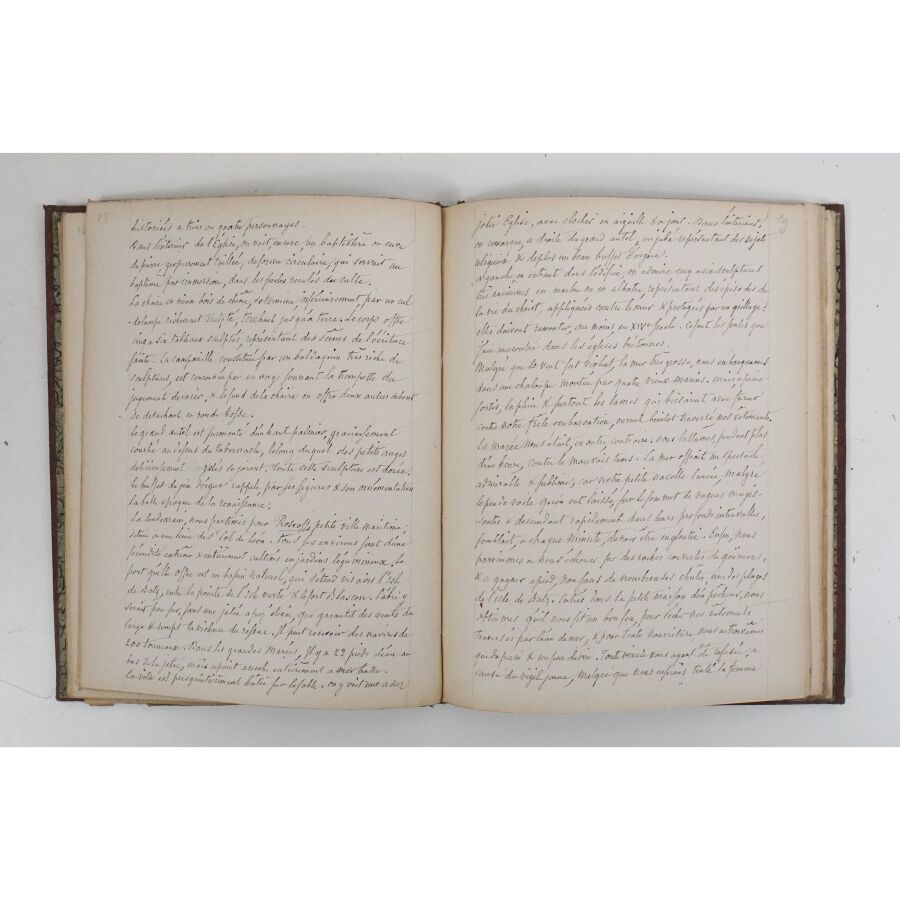 28
historiés a trois ou quatre personnages.
Dans l'intérieur de l'Eglise, on voit, encore un baptistère ou cuve
de pierre grossierement taillée, de forme circulaire, qui servait au
baptême par immersion, dans les siecles reculés du culte.
La chaire en vieux bois de chêne, se termine, inférieurement, par un cul
-de lampe richement sculpté, tombant jusqu'a terre. Le corps offre
cinq a six tableaux sculptés, représentant des scènes de l'écriture
sainte. La campanille constituée par un baldaquin très riche de
sculptures, est couronnée par un ange sonnant la trompette du
jugement dernier, & le fond de la chaire en offre deux autres debout
se detachant en ronde bosse.
Le grand autel est surmonté d'un haut palmier, gracieusement
courbé au dessus du tabernacle, le long duquel des petits anges
délicieusement jolis se jouent. Toute cette sculpture est dorée.
Le buffet du jeu d'orgue rappele, par ses figures & son ornementation
la belle époque de la renaissance.
Le lendemain, nous partimes pour Roscoff, petite ville maritime,
située a une lieue de S. Pol de Léon. Tous ses environs sont d'une
fécondité extrême & entièrement cultivés en jardins légumineux. Le
port qu'elle offre est un bassin naturel, qui s'étend vis a vis l'Isle
de Batz, entre la pointe de l'Isle verte & le fort Blascon. L'abri y
serait peu sur, sans une jetée assez élevée, que garantit des vents du
large & rompt la violence du ressac. Il peut recevoir des navires de
200 tonneaux. Dans les grandes Marées, Il y a 22 pieds d'eau au
bas de la jetée, mais ce point asseche entièrement a mer basse.
La ville est presqu'entièrement bâtie sur le sable. on y voit une assez
29
jolie Eglise, avec clocher en aiguille & a jour. Dans l'intérieur,
on remarque a droite du grand autel, un jubé représentant des sujets
religieux & de plus un beau buffet d'orgue.
a gauche en entrant dans l'édifice, on admire cinq a six sculptures
très anciennes en marbre ou en albatre representant des épisodes de
la vie du christ, appliquées contre le mur & protégées par un grillage:
elles doivent remonter, au moins au XIVe siecle. Ce sont les seules que
j'aie rencontré dans les eglises bretonnes.
Malgré que le vent fut violent, la mer très grosse, nous embarquames
dans une chaloupe montée par quatre vieux marins. mais a peine
sortis, la pluie & surtout les lames qui brisaient avec fureur
contre notre frêle embarcation, eurent bientot traversé nos vêtements.
La marée nous était, en outre contraire. nous luttâmes pendant plus
d'une heure, contre le mauvais tems. La mer offrait un spectacle
admirable & sublime; car notre petite nacelle lancée, malgré
le peu de voile qu'on eut laissé, sur le sommet de vagues mugis-
santes & descendant rapidement dans leurs profonds intervalles,
semblait, a chaque minute, devoir être engloutie. Enfin, nous
parvinmes a nous échouer sur des roches couvertes de goëmons,
& a gagner a pied, non sans de nombreuses chutes, une des plages
de l'isle de Batz. Entrés dans la petite maison d'un pêcheur, nous
obtinmes qu'il nous fit un bon feu, pour sécher nos vêtements
traversés par l'eau de mer, & pour toute nourriture nous ne trouvâmes
que du pain & un peu de vin. Tout nous ayant été refusé, a
cause du vigil jeune, malgré que nous eussions tenté la femme